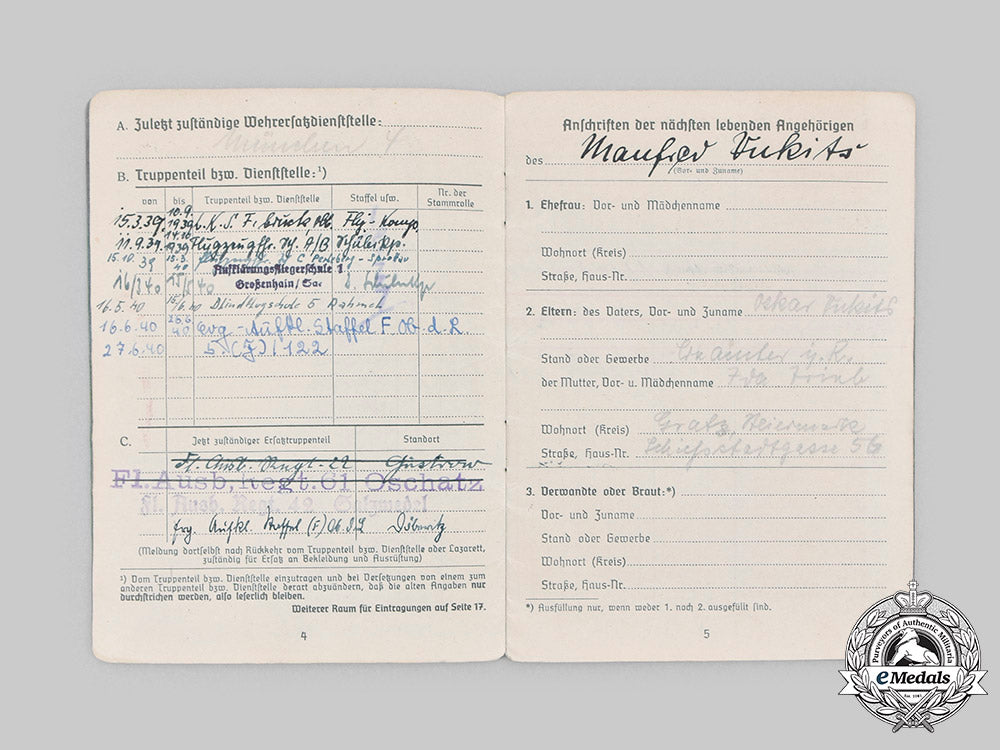 A. Zuletzt zuständige Wehrersatzdienststelle:
München 4
B. Truppenteil bzw. Dienststelle:¹)
von bis Truppenteil bzw. Dienststelle Staffel usw. Nr. der Stammrolle
15.3.39 10.9. 1939 L.K.S. F. Flg.-Komp.
11.9.39 14.10. 1939 A/B Schülerkp.
15.10.39 15.3. 40 C
Aufklärungsfliegerschule 1
Großenhain/Sa.
16/3 40 15/5 40
16.5.40 15/6.40 Blindflugschule 5 Rahmel
16.6.40 26.6 40 Erg.-Aufkl. Staffel F Ob. d. L.
27.6.40 5.(F)/122
C. Jetzt zuständiger Ersatztruppenteil Standort
Fl. Ausb. Regt. 22 Güstrow
Fl. Ausb. Regt. 61 Oschatz
Fl. Ausb. Regt. 42 Salzwedel
Erg. Aufkl. Staffel (F) Ob.d.L Döberitz
(Meldung dortselbst nach Rückkehr vom Truppenteil bzw. Dienststelle oder Lazarett,
zuständig für Ersatz an Bekleidung und Ausrüstung)
¹) Vom Truppenteil bzw. Dienststelle einzutragen und bei Versetzungen von einem zum
anderen Truppenteil bzw. Dienststelle derart abzuändern, daß die alten Angaben nur
durchstrichen werden, also leserlich bleiben.
Weiterer Raum für Eintragungen auf Seite 17.
4
Anschriften der nächsten lebenden Angehörigen
des Manfred Vukits
(Vor- und Zuname)
1. Ehefrau: Vor- und Mädchenname
Wohnort (Kreis)
Straße, Haus-Nr.
2. Eltern: des Vaters, Vor- und Zuname Oskar Vukits
Stand oder Gewerbe Beamter i.R.
der Mutter, Vor- u. Mädchenname Ida
Wohnort (Kreis) Graz, Steiermark
Straße, Haus-Nr. Schießstadtgasse 56
3. Verwandte oder Braut:*)
Vor- und Zuname
Stand oder Gewerbe
Wohnort (Kreis)
Straße, Haus-Nr.
*) Ausfüllung nur, wenn weder 1. noch 2. ausgefüllt sind.
5
Purveyors of Authentic Militaria
eMedals